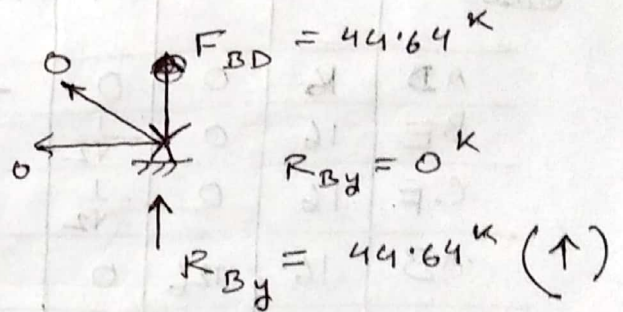 F_BD = 44.64^K
0
0
R_By = 0^K
R_By = 44.64^K (↑)